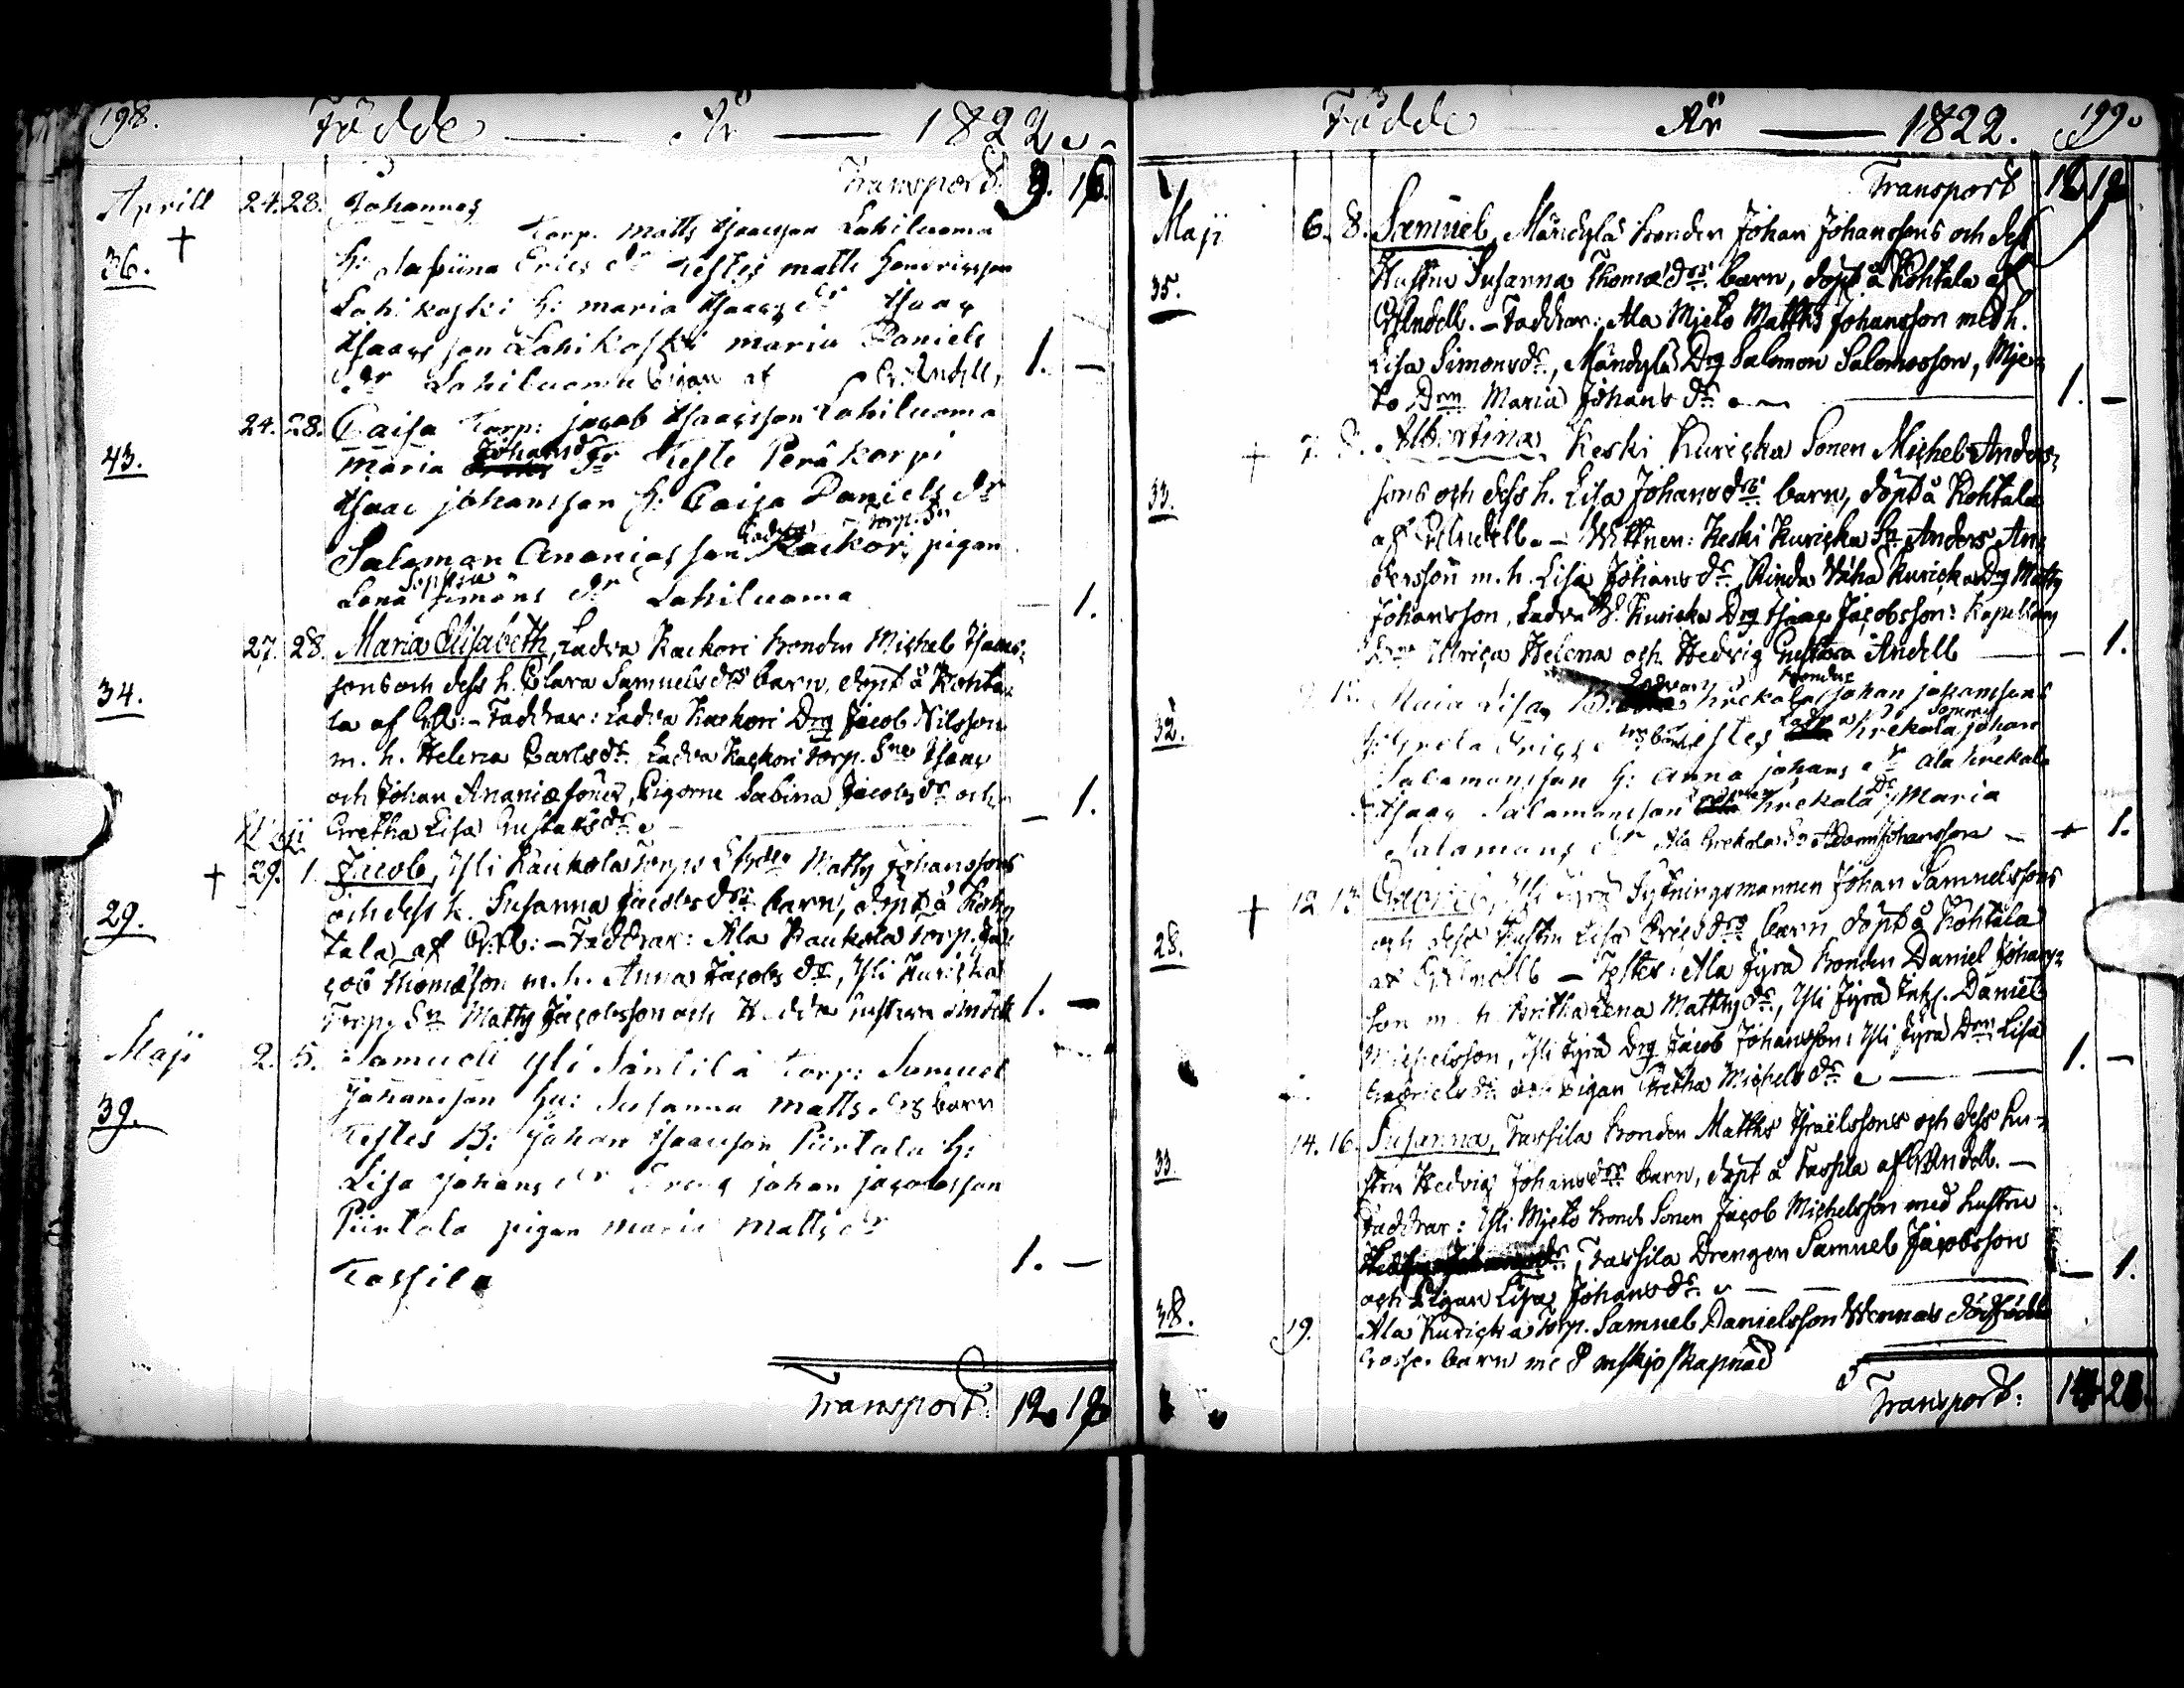 198.
Födde — År — 1822.
Transport 9. 16.
Aprill 24. 28. Johannes
Torp. Matts Isaacsson Lahiluoma
36. † H: Sabina Erics dr Testes Matts Hendricsson
Lahikoski h: Maria Isaacs dr Isaac
Isaacsson Lahikoski Maria Daniels 1. —
dr Lahiluoma pigan af Gr. Andell.
24. 28. Caisa Torp: Jacob Isaacsson Lahiluoma
43. Maria Johans dr Teste Peräkorpi
Isaac Johansson h: Caisa Daniels dr
Ladva Torp. Sn
Salomon Ananiasson Kackori, pigan
Sophia
Lena Simons dr Lahiluoma — 1.
27. 28. Maria Elisabeth, Ladva Kackori bonden Michel Isaacs-
34. sons och dess h. Clara Samuelsdrs barn, döpt å Kohta-
la af GA: – Faddrar: Ladva Kackori Drg Jacob Nilsson
m. h. Helena Carlsdr. Ladva Kackori Torp. Sne Isaac
och Johan Ananiæ söner, Pigorne Sabina Jacobsdr och — 1.
Maji Gretha Lisa Gustafsdr.
† 29. 1. Jacob, Yli Kaukola Torp. Matts Johanssons
29. och dess h. Susanna Jacobsdrs barn, döpt å Koh-
tala af Gr. A: – Faddrar: Ala Kaukola Torp. Ja-
cob Thomæson m. h. Anna Jacobsdr, Yli Kuricka
Torp. Sn Matts Jacobsson och Hedda Gustava 1. —
Maji 2. 5. Samuel Yli Säntilä Torp: Samuel
39. Johansson hu: Susanna Matts drs barn
Testes B: Johan Isaacsson Piirtala h:
Lisa Johans dr Dreng Johan Jacobsson
Piirtala pigan Maria Matts dr
Tassila 1. —
Transport: 12. 18.
Födde — År — 1822. 199.
Transport 12 18
Maji 6. 8. Samuel, Mändylä bonden Johan Johanssons och dess
35. Hustru Susanna Thomædrs barn, döpt å Kohtala af
GAndell. – Faddrar: Ala Mjeto Matths Johansson med h.
Lisa Simonsdr., Mändylä Drg Salomon Salomosson, Mje-
to Drn Maria Johans dr. — 1. —
† 7. 8. Albertina, Keski Kuricka Sonen Michel Anders-
33. sons och dess h. Lisa Johansdrs barn, döpt å Kohtala
af GAndell. – Wittnen: Keski Kuricka Sn Anders An-
dersson m. h. Lisa Johans dr, Rinda Wähä Kuricka Drg Matts
Johansson, Ladva Kuricka Drg Isaac Jacobsson:
Ulrica Helena och Hedvig Gustava Andell — 1.
Maia Lisa, Krekola Johan Johanssons
32. h: Greta Erics Testes Krekola Johan
Salamonsson h: Anna Johans dr Ala Krekola
Isaac Salamonsson Krekola, Maria
Salamons dr Ala Krekola Adam Johansson — 1.
† 12 13 Gabriel, Yli Jyrä Sytningsmannen Johan Samuelssons
28. och dess Hustru Lisa Ericsdrs barn döpt å Kohtala
af GAndell – Testes: Ala Jyrä bonden Daniel Johans-
son m. h. Britha Lena Matthsdr., Yli Jyrä Inhs. Daniel
Michelsson, Yli Jyrä Drg Jacob Johansson: Yli Jyrä Drn Lisa
Gabrielsdr. och Pigan Gretha Michelsdr. — 1. —
14. 16. Susanna, Tassila bonden Matths Israëlssons och dess hu-
33. stru Hedvig Johansdrs barn, döpt å Tassila af GAndell. —
Faddrar: Yli Mjeto bonde Sonen Jacob Michelsson med hustru
Tassila Drengen Samuel Jacobsson
och Pigan Lisa Johansdr. — 1.
38. 19. Ala Kuricka Torp. Samuel Danielsson Wennas dödfödde
Gosse-barn med
Transport: 14 21.